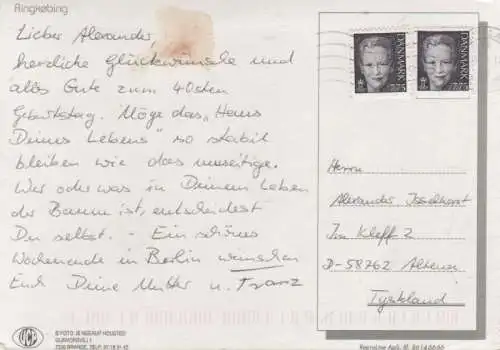 Ringkøbing
Lieber Alexander,
herzliche Glückwünsche und
alles Gute zum 40sten
Geburtstag. Möge das „Haus
Deines Lebens" so stabil
bleiben wie das umseitige.
Wer oder was in Deinem Leben
der Baum ist, entscheidest
Du selbst. - Ein schönes
Wochenende in Berlin wünschen
Euch Deine Mutter u. Franz
DANMARK
DANMARK
Herrn
Alexander Isselhorst
Im Kleff 2
D-58762 Altena
Tyskland